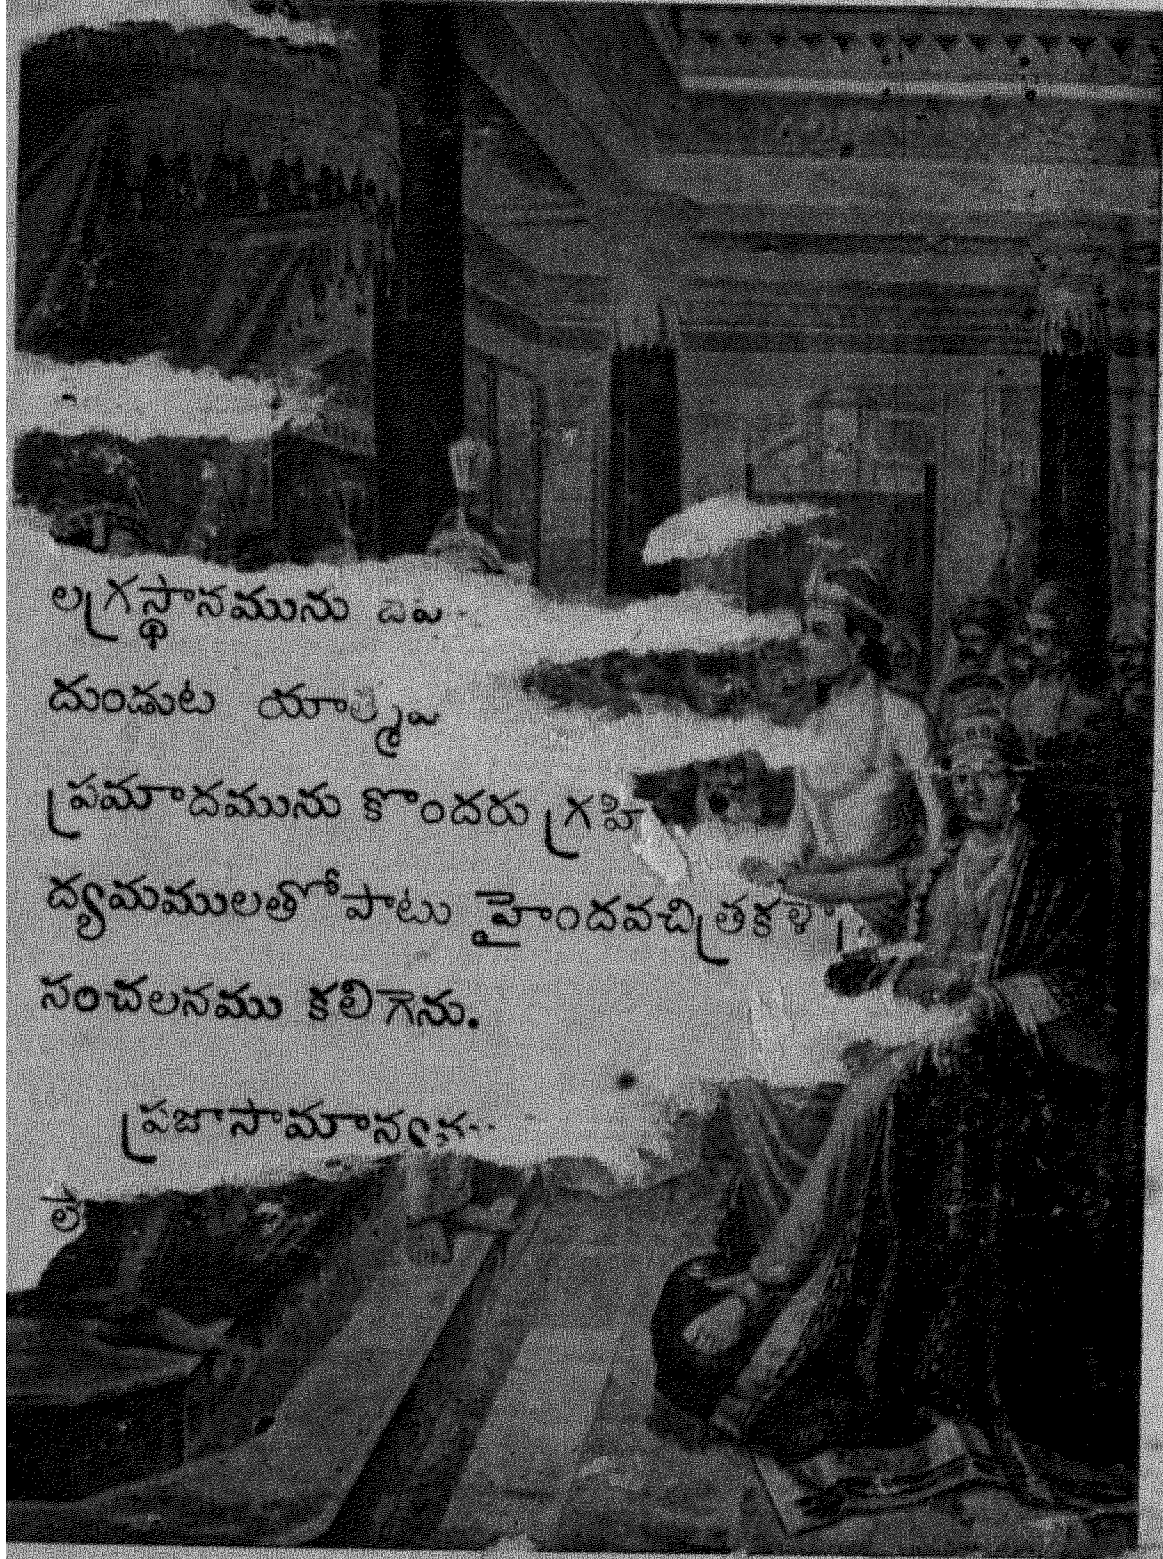 లగ్రస్థానమును
దుండుట
ప్రమాదమును కొందరు గ్రహి
ద్యమములతోపాటు హైందవచిత్రకళా
సంచలనము కలిగెను.
ప్రజాసామాన్య